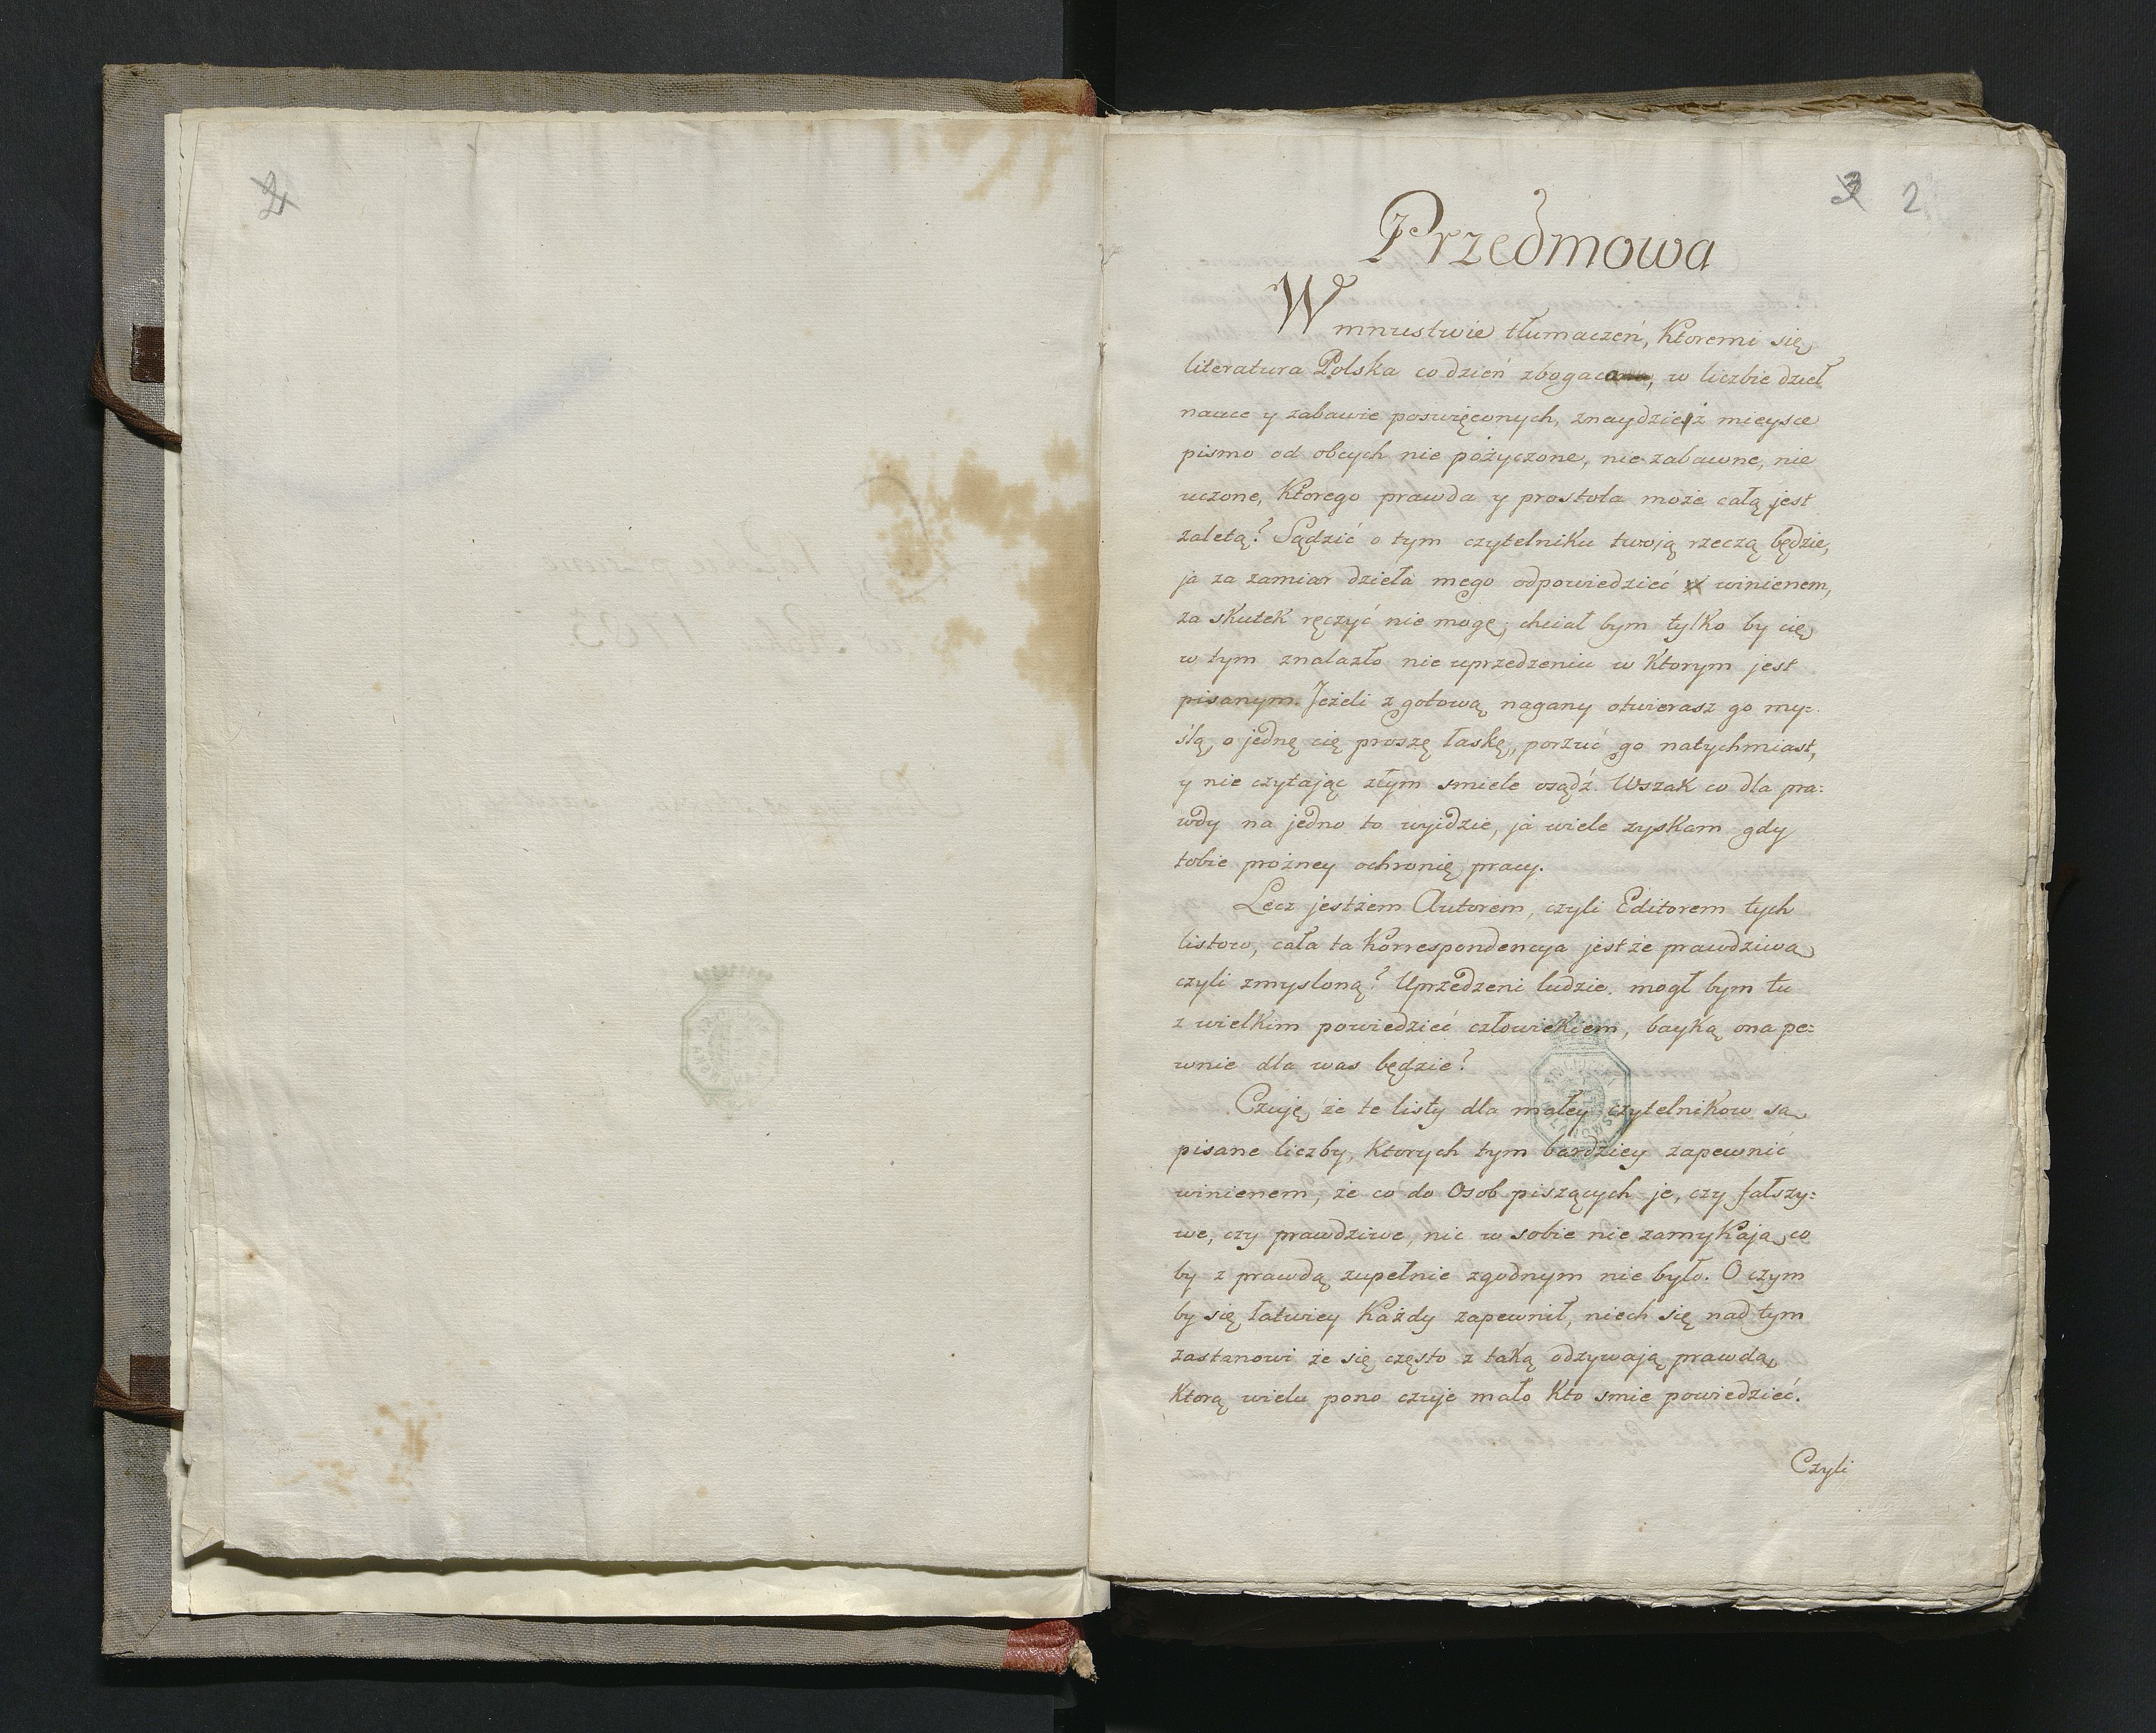 2
3 2
Przedmowa
W mnustwie tłumaczeń, Ktoremi się
literatura Polska co dzień zbogaca, w liczbie dzieł
nauce y zabawie poswięconych, znaydzież mieysce
pismo od obcych nie pożyczone, nie zabawne, nie
uczone, Ktorego prawda y prostota może całą jest
zaletą? Sądzić o tym czytelniku twoją rzeczą będzie,
ja za zamiar dzieła mego odpowiedzieć winienem,
za skutek ręczyć nie mogę; chciał bym tylko by cię
w tym znalazło nie uprzedzeniu w Ktorym jest
pisanym. Jeżeli z gotową nagany otwierasz go my=
ślą, o jednę cię proszę łaskę, porzuć go natychmiast,
y nie czytając złym smiele osądź. Wszak co dla pra=
wdy na jedno to wyidzie, ja wiele zyskam gdy
tobie prożney ochronię pracy.
Lecz jestżem Autorem, czyli Editorem tych
listow, cała ta korrespondencya jestże prawdziwa
czyli zmysloną? Uprzedzeni ludzie. mogł bym tu
z wielkim powiedzieć człowiekiem, bayką ona pe=
wnie dla was będzie?
Czuję, że te listy dla małey czytelnikow są
pisane liczby, Ktorych tym bardziey zapewnić
winienem, że co do Osob piszących je, czy fałszy=
we, czy prawdziwe, nic w sobie nie zamykają co
by z prawdą zupełnie zgodnym nie było. O czym
by się łatwiey Każdy zapewnił, niech się nad tym
zastanowi że się często z taką odzywają prawdą,
Ktorą wielu pono czuje mało Kto smie powiedzieć.
Czyli